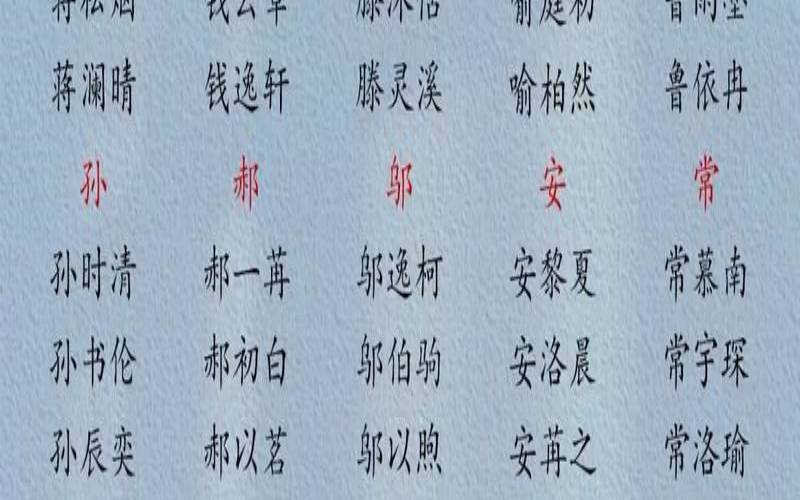 蒋松烟 钱云草 滕沐恬 喻庭初 鲁雨墨
蒋澜晴 钱逸轩 滕灵溪 喻柏然 鲁依冉
孙 郝 邬 安 常
孙时清 郝一苒 邬逸柯 安黎夏 常慕南
孙书伦 郝初白 邬伯驹 安洛晨 常宇琛
孙辰奕 郝以茗 邬以煦 安苒之 常洛瑜